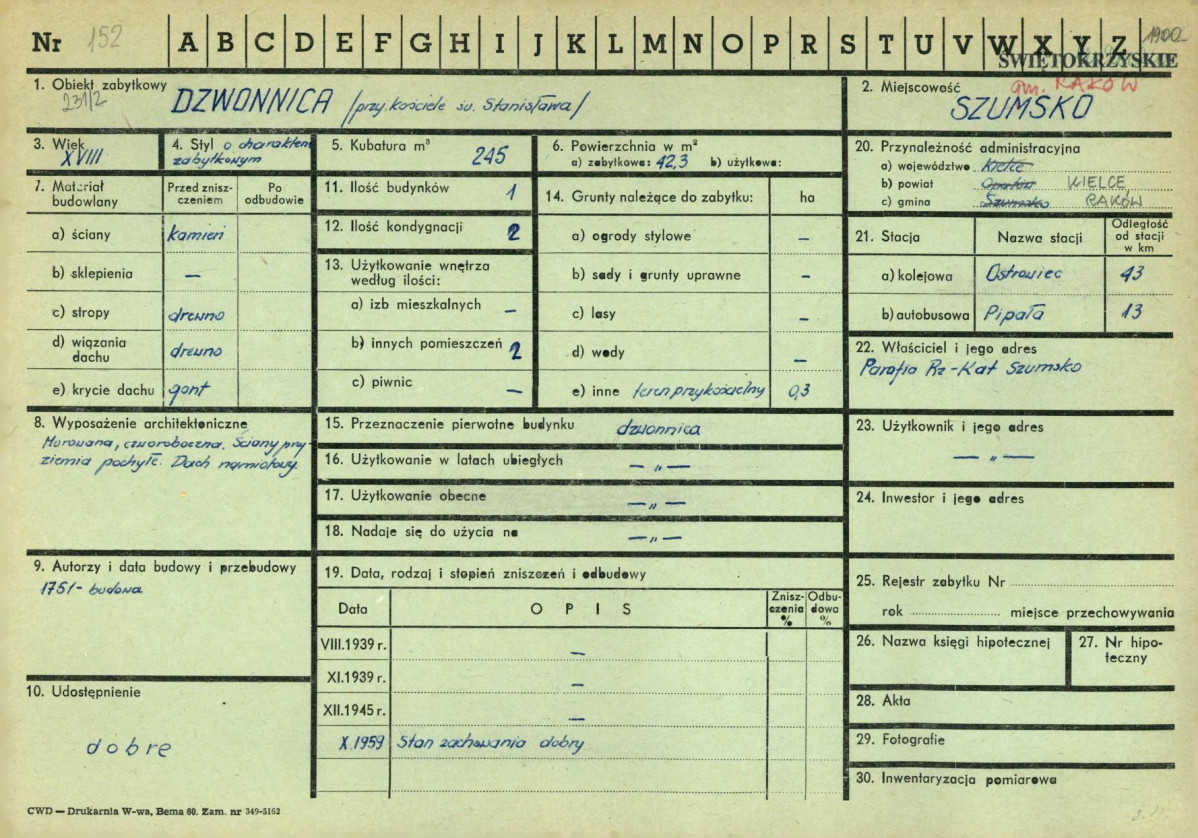 Nr 152 A B C D E F G H I J K L M N O P R S T U V W X Y Z 1900
ŚWIĘTOKRZYSKIE
gm. RAKÓW
1. Obiekt zabytkowy
231/2
DZWONNICA /przy kościele św. Stanisława/
2. Miejscowość
SZUMSKO
3. Wiek
XVIII
4. Styl o charakterze
zabytkowym
5. Kubatura m³ 245
6. Powierzchnia w m²
a) zabytkowa: 42,3 b) użytkowa:
20. Przynależność administracyjna
a) województwo Kielce
b) powiat Opatów KIELCE
c) gmina Szumsko RAKÓW
7. Materiał
budowlany
Przed znisz-
czeniem
Po
odbudowie
a) ściany kamień
b) sklepienia —
c) stropy drewno
d) wiązania
dachu drewno
e) krycie dachu gont
11. Ilość budynków 1
12. Ilość kondygnacji 2
13. Użytkowanie wnętrza
według ilości:
a) izb mieszkalnych —
b) innych pomieszczeń 2
c) piwnic —
14. Grunty należące do zabytku: ha
a) ogrody stylowe —
b) sady i grunty uprawne —
c) lasy —
d) wody —
e) inne teren przykościelny 0,3
21. Stacja Nazwa stacji
Odległość
od stacji
w km
a) kolejowa Ostrowiec 43
b) autobusowa Pipała 13
22. Właściciel i jego adres
Parafia Rz-Kat Szumsko
8. Wyposażenie architektoniczne
Murowana, czworoboczna. Ściany przy-
ziemia pochyłe. Dach namiotowy.
15. Przeznaczenie pierwotne budynku dzwonnica
16. Użytkowanie w latach ubiegłych — „ —
17. Użytkowanie obecne — „ —
18. Nadaje się do użycia na — „ —
23. Użytkownik i jego adres
— „ —
24. Inwestor i jego adres
9. Autorzy i data budowy i przebudowy
1751 - budowa
19. Data, rodzaj i stopień zniszczeń i odbudowy
Data O P I S
Znisz-
czenia
%
Odbu-
dowa
%
VIII.1939 r. —
XI.1939 r. —
XII.1945 r. —
X.1959 Stan zachowania dobry
25. Rejestr zabytku Nr
rok miejsce przechowywania
26. Nazwa księgi hipotecznej
27. Nr hipo-
teczny
10. Udostępnienie
dobre
28. Akta
29. Fotografie
30. Inwentaryzacja pomiarowa
CWD — Drukarnia W-wa, Bema 60. Zam. nr 349-5162